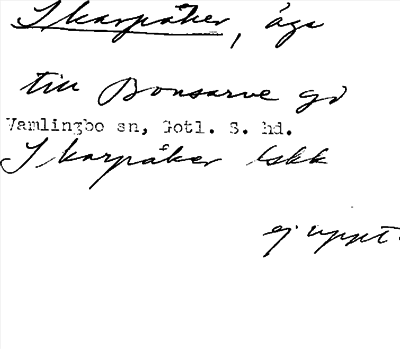 Skarpåker, åga
till Bonsarve gd
Vamlingbo sn, Gotl. S. hd.
Skarpåker lskk
ej uppt.